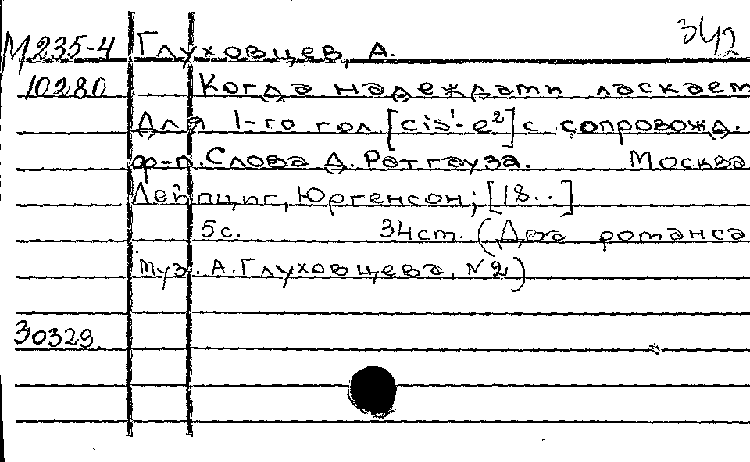 М235-4 Глуховцев, А. 342
10280 Когда надеждами ласкает
Для 1-го гол. [cis¹-e²] с сопровожд.
ф-п. Слова Д. Ратгауза. Москва
Лейпциг, Юргенсон; [18..]
5с. 34см. (Два романса
муз. А. Глуховцева, №2)
30329.